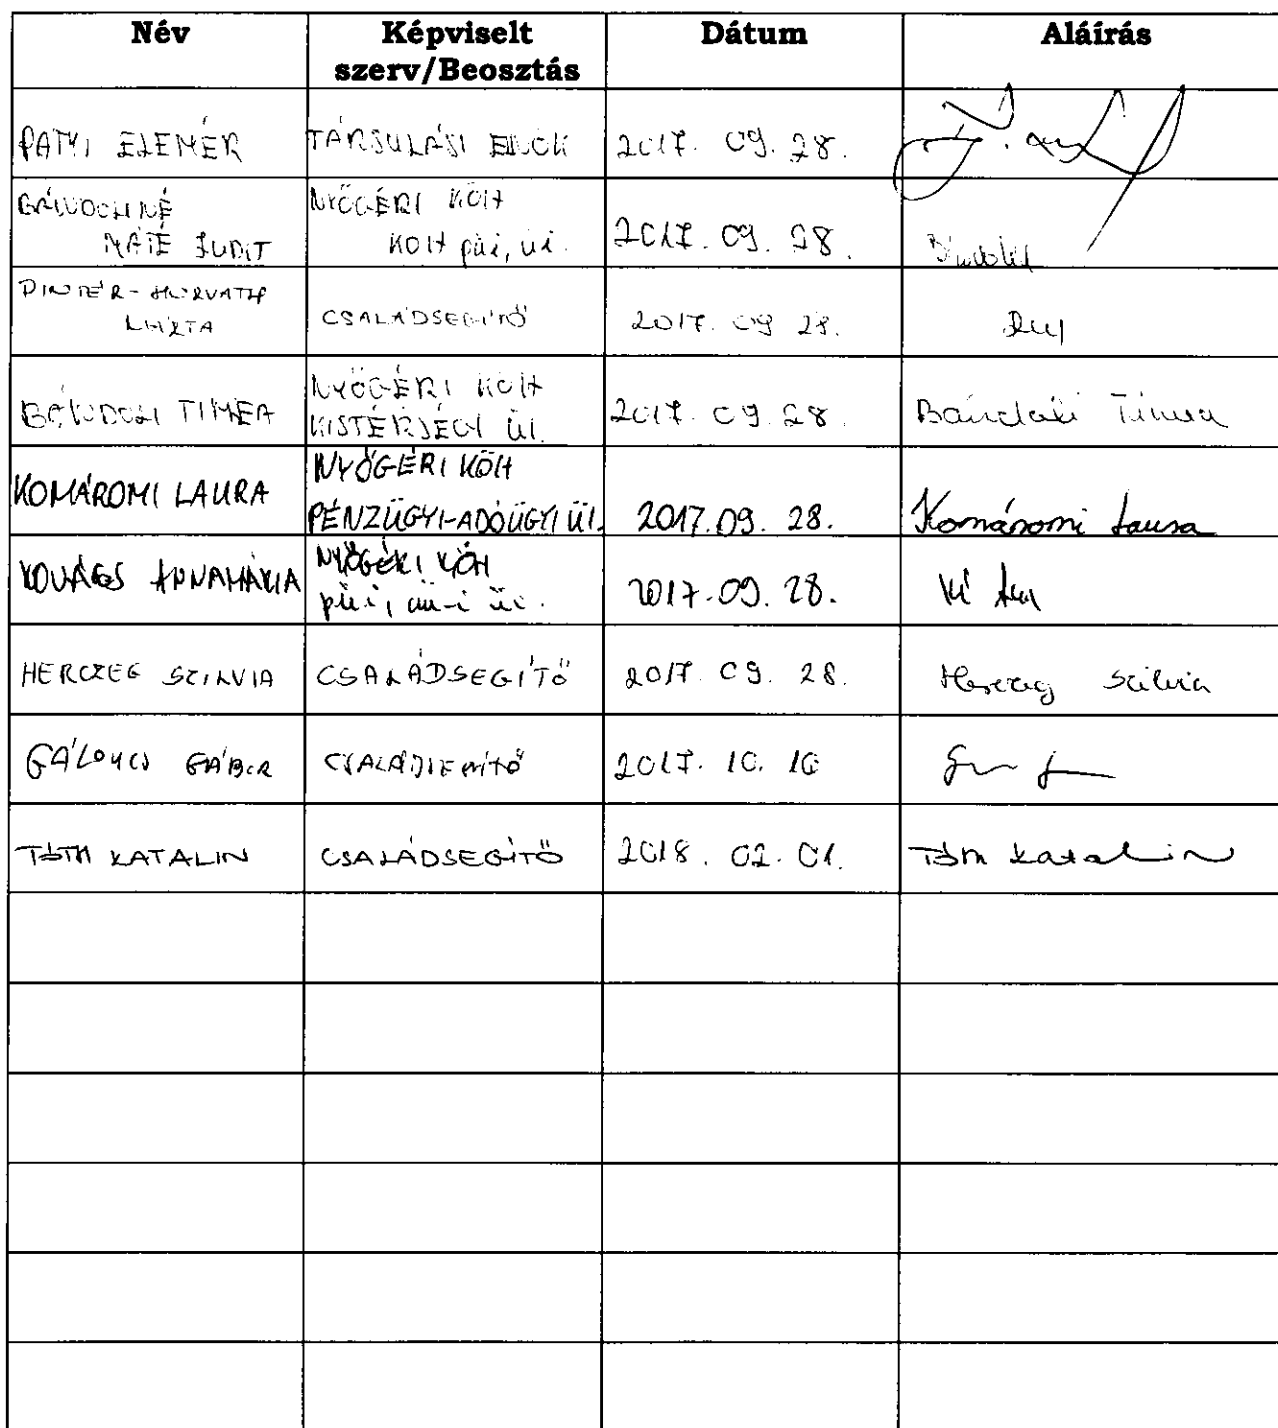 Név
Képviselt
szerv/Beosztás
Dátum
Aláírás
PATYI ELEMÉR
TÁRSULÁSI ELNÖK
2017. 09. 28.
MÁTÉ JUDIT
NYŐGÉRI KÖH
KÖH
2017. 09. 28.
PINTÉR-HORVÁTH
MÁRTA
CSALÁDSEGÍTŐ
2017. 09 28.
BÁNDOLI TIMEA
NYŐGÉRI KÖH
KISTÉRSÉGI ÜI.
2017. 09. 28.
Bándoli Timea
KOMÁROMI LAURA
NYŐGÉRI KÖH
PÉNZÜGYI-ADÓÜGYI ÜI.
2017.09. 28.
Komáromi Laura
KOVÁCS ANNAMÁRIA
NYŐGÉRI KÖH
2017.09. 28.
HERCZEG SZILVIA
CSALÁDSEGÍTŐ
2017. 09. 28.
Herczeg Szilvia
GÁBOR
CSALÁDSEGÍTŐ
2017. 10. 10
TÓTH KATALIN
CSALÁDSEGÍTŐ
2018. 02. 01.
Tóth Katalin